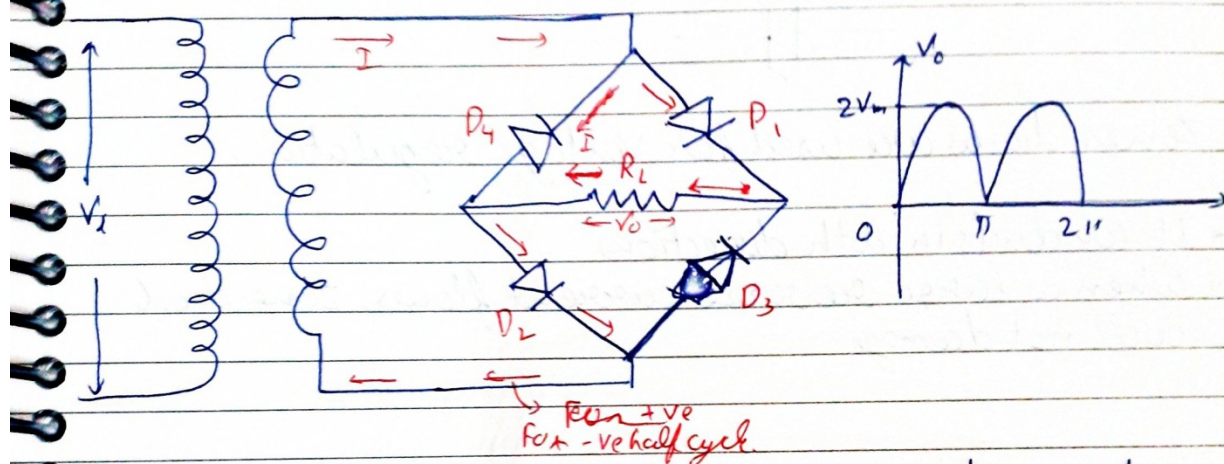 I
V₁
D₄
I
D₁
R_L
V₀
D₂
D₃
For -ve half cycle.
V₀
2Vm
0
π
2π